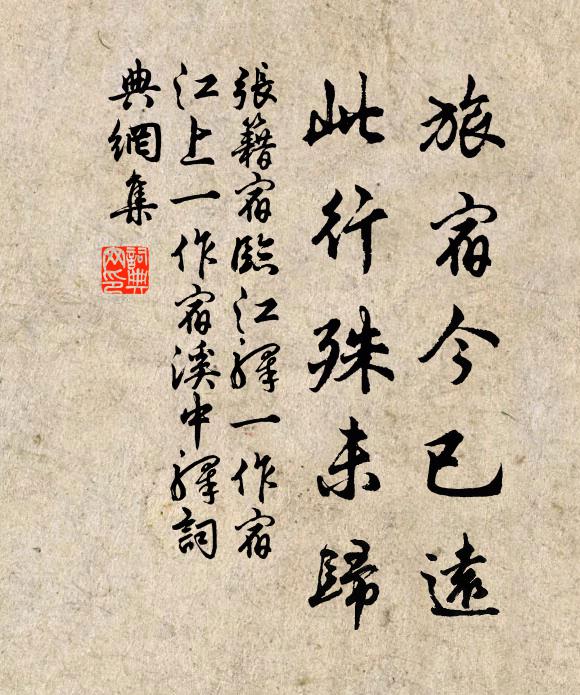 旅宿今已遠
此行殊未歸
張籍宿臨江驛一作宿
江上一作宿溪中驛詞
典網集
詞典
网印